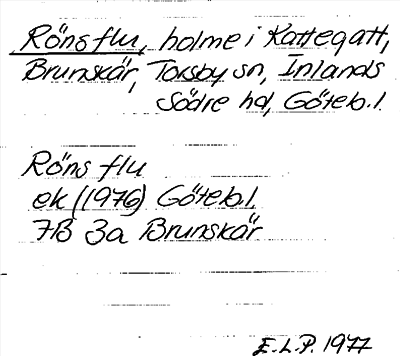 Röns flu, holme i Kattegatt,
Brunskär, Torsby sn, Inlands
Södre hd, Göteb.l.
Röns flu
ek (1976) Göteb.l.
7B 3a Brunskär
E.L.P. 1977